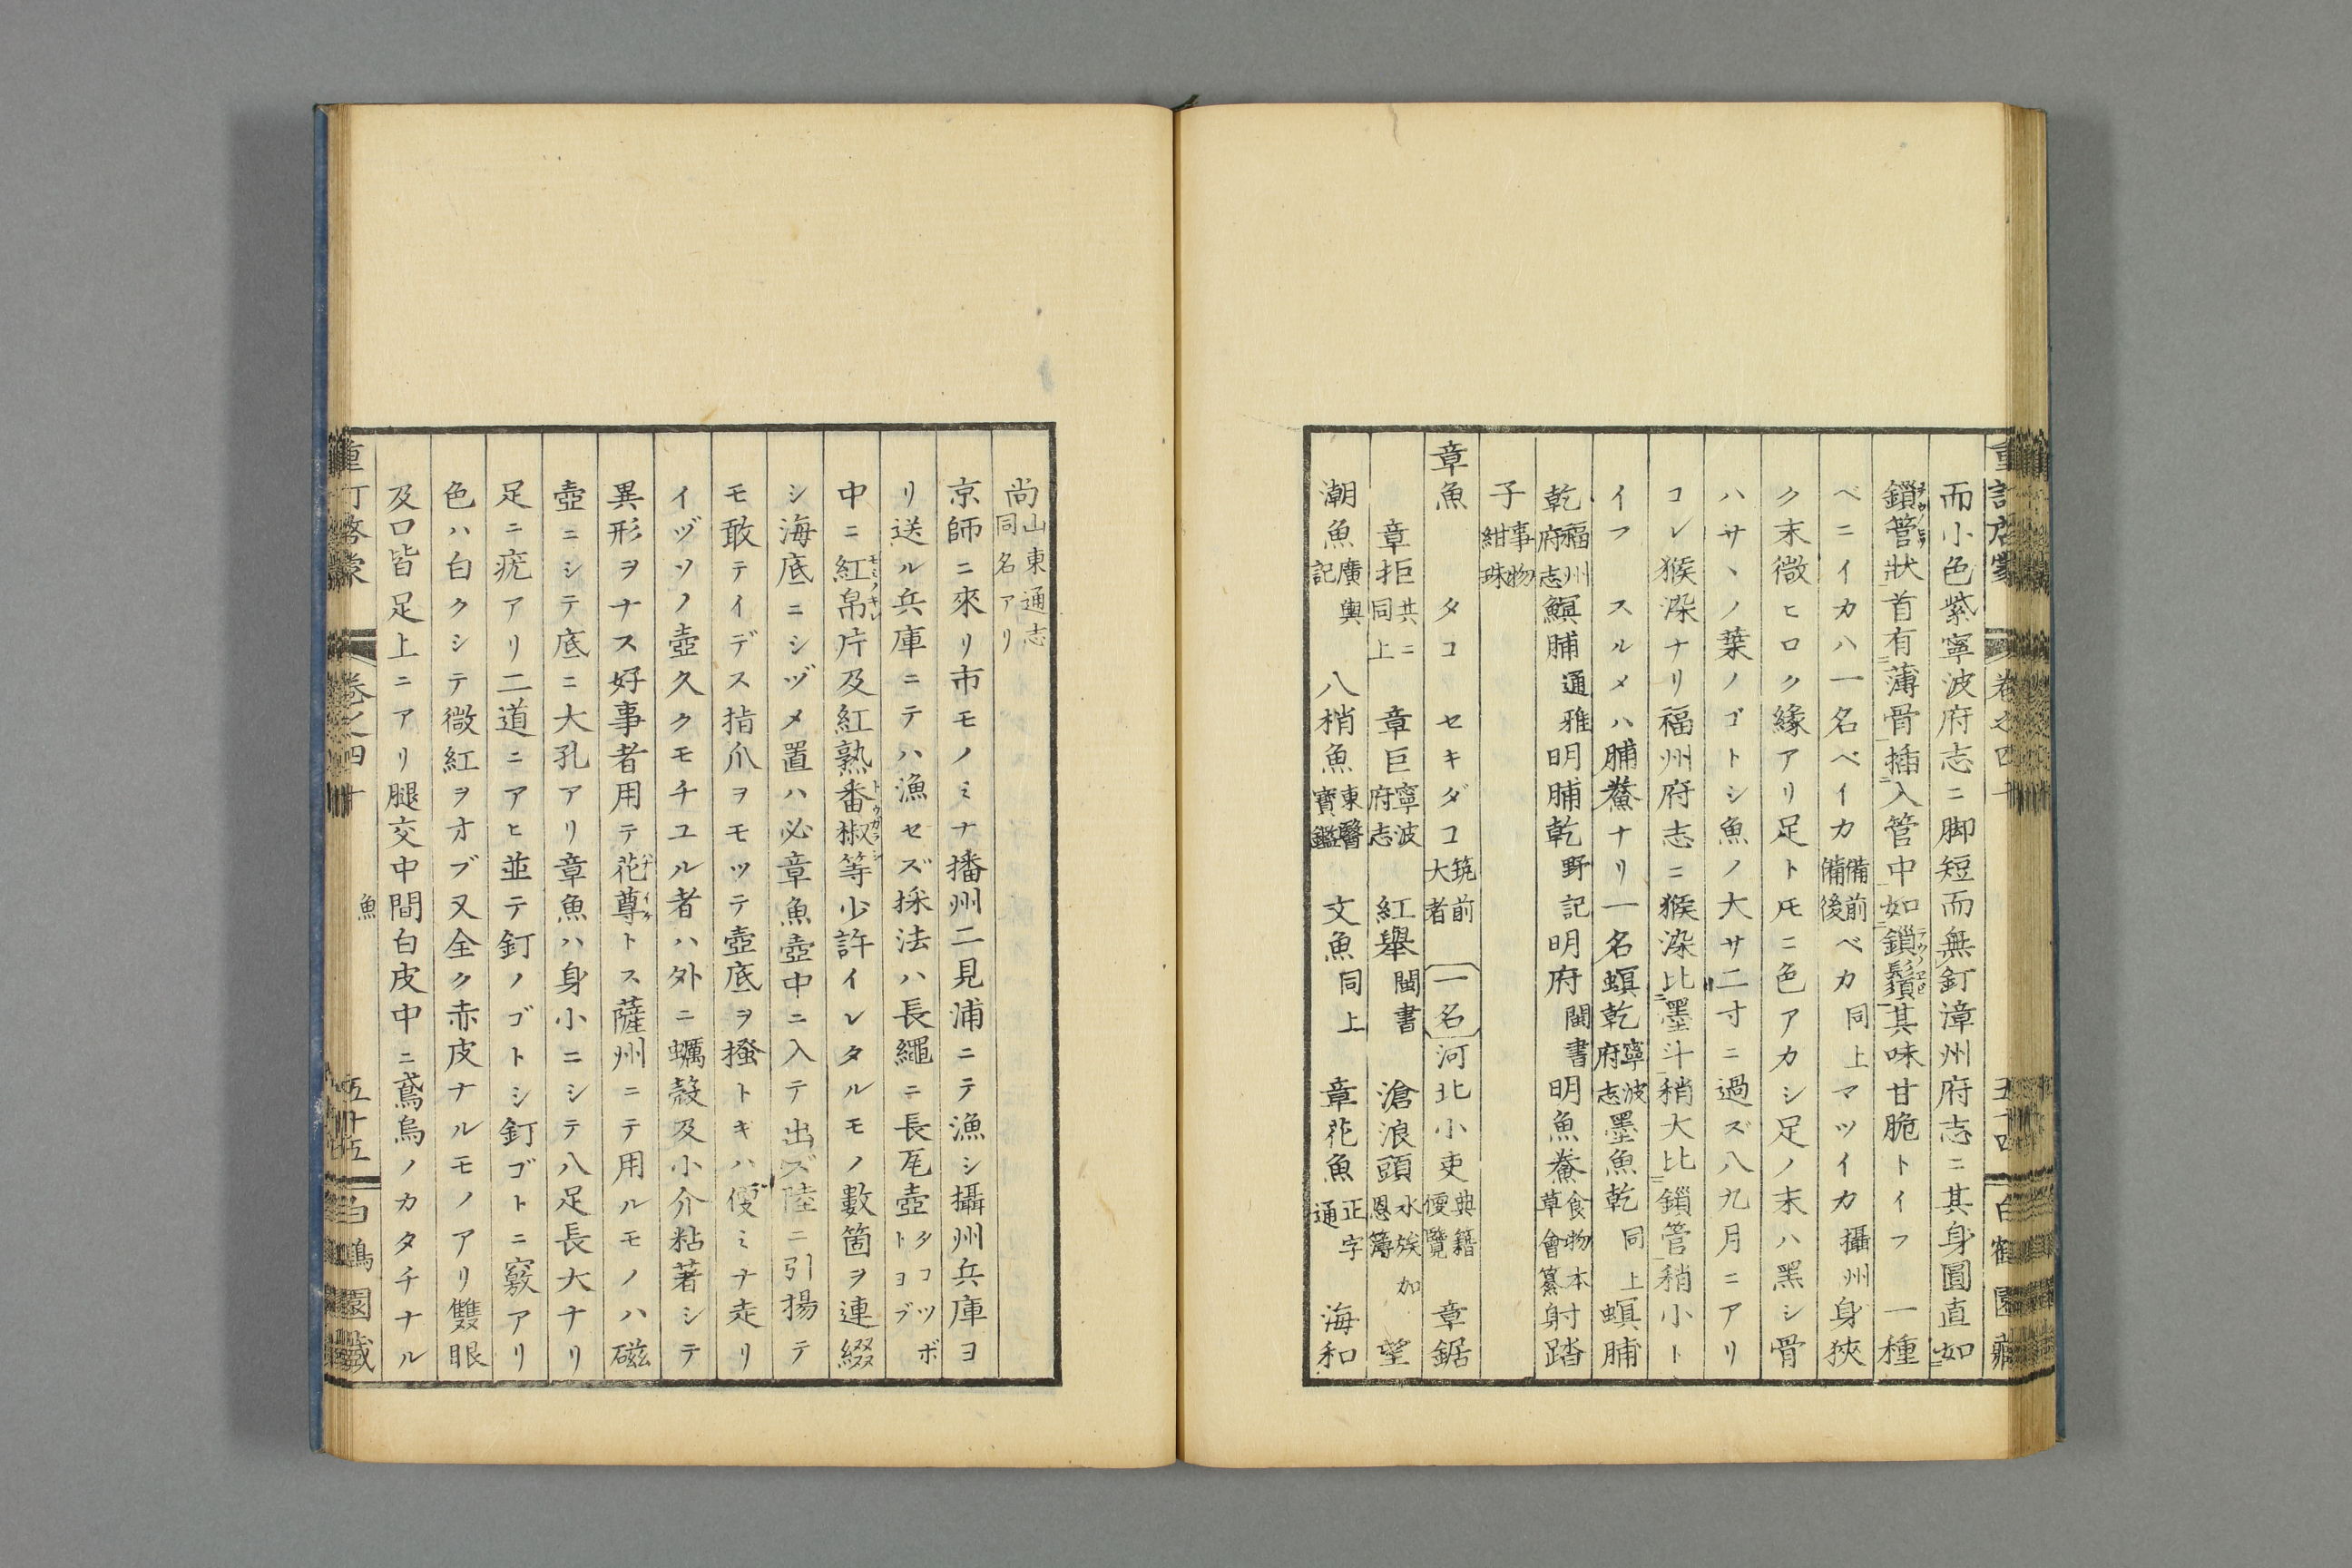 而小色紫寧波府志ニ脚短而無釘漳州府志ニ其身圓直如
鎖管狀首有薄骨插入管中如鎖鬚其味甘脆トイフ 一種
ベニイカハ一名ベイカ備前備後ベカ同上マツイカ攝州身狹
ク末微ヒロク緣アリ足トモニ色アカシ足ノ末ハ黑シ骨
ハサヽノ葉ノゴトシ魚ノ大サ二寸ニ過ズ八九月ニアリ
コレ猴染ナリ福州府志ニ猴染比墨斗稍大比鎖管稍小ト
イフ スルメハ脯鮝ナリ一名螟乾寧波府志墨魚乾同上螟脯
乾福州府志鰇脯通雅明脯乾野記明府閩書明魚鮝食物本草會纂射踏
子事物紺珠
章魚 タコ セキダコ筑前大者 一名 河北小吏典籍便覽 章鋸
章拒共ニ同上 章巨寧波府志 紅舉閩書 滄浪頭水族加恩簿 望
潮魚廣輿記 八梢魚東醫寶鑑 文魚同上 章花魚正字通 海和
重訂啓蒙 卷之四十 五十四
尚山東通志同名アリ
京師ニ來リ市モノミナ播州二見浦ニテ漁シ攝州兵庫ヨ
リ送ル兵庫ニテハ漁セズ採法ハ長繩ニ長瓦壺タコツボトヨブ
中ニ紅帛片及紅熟番椒等少許イレタルモノ數箇ヲ連綴
シ海底ニシヅメ置ハ必章魚壺中ニ入テ出ズ陸ニ引揚テ
モ敢テイデス指爪ヲモツテ壺底ヲ搔トキハ便ミナ走リ
イヅソノ壺久クモチユル者ハ外ニ蠣殼及小介粘著シテ
異形ヲナス好事者用テ花尊トス薩州ニテ用ルモノハ磁
壺ニシテ底ニ大孔アリ章魚ハ身小ニシテ八足長大ナリ
足ニ疣アリ二道ニアヒ並テ釘ノゴトシ釘ゴトニ竅アリ
色ハ白クシテ微紅ヲオブ又全ク赤皮ナルモノアリ雙眼
及口皆足上ニアリ腿交中間白皮中ニ鳶烏ノカタチナル
重訂啓蒙 卷之四十 魚 五十五